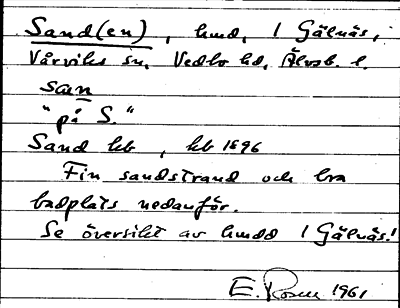 Sand(en), hmd, I Gälnäs,
Vårviks sn, Vedbo hd, Älvsb. l.
san
"på S."
Sand kb, kb 1896
Fin sandstrand och bra
badplats nedanför.
Se översikt av hmdd I Gälnäs!
E. Rosen 1961